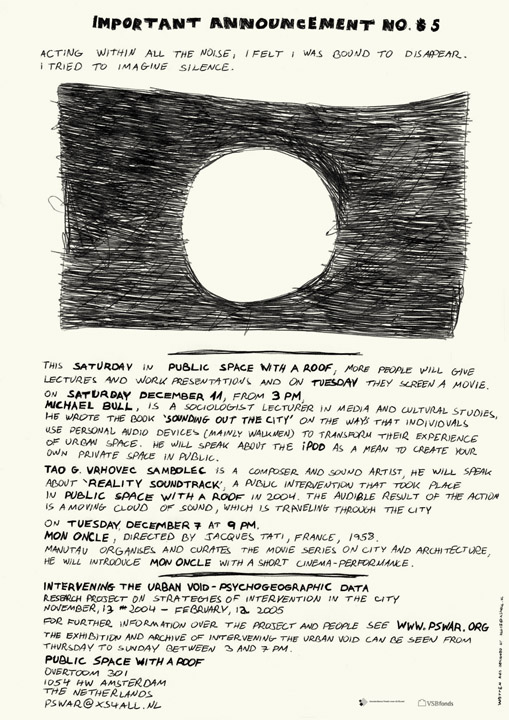 IMPORTANT ANNOUNCEMENT NO. $5
ACTING WITHIN ALL THE NOISE, I FELT I WAS BOUND TO DISAPPEAR.
I TRIED TO IMAGINE SILENCE.
THIS SATURDAY IN PUBLIC SPACE WITH A ROOF, MORE PEOPLE WILL GIVE
LECTURES AND WORK PRESENTATIONS AND ON TUESDAY THEY SCREEN A MOVIE.
ON SATURDAY DECEMBER 11, FROM 3 PM,
MICHAEL BULL, IS A SOCIOLOGIST LECTURER IN MEDIA AND CULTURAL STUDIES,
HE WROTE THE BOOK 'SOUNDING OUT THE CITY' ON THE WAYS THAT INDIVIDUALS
USE PERSONAL AUDIO DEVICES (MAINLY WALKMEN) TO TRANSFORM THEIR EXPERIENCE
OF URBAN SPACE. HE WILL SPEAK ABOUT THE iPOD AS A MEAN TO CREATE YOUR
OWN PRIVATE SPACE IN PUBLIC.
TAO G. VRHOVEC SAMBOLEC IS A COMPOSER AND SOUND ARTIST, HE WILL SPEAK
ABOUT 'REALITY SOUNDTRACK', A PUBLIC INTERVENTION THAT TOOK PLACE
IN PUBLIC SPACE WITH A ROOF IN 2004. THE AUDIBLE RESULT OF THE ACTION
IS A MOVING CLOUD OF SOUND, WHICH IS TRAVELING THROUGH THE CITY
ON TUESDAY, DECEMBER 7 AT 9 PM.
MON ONCLE, DIRECTED BY JACQUES TATI, FRANCE, 1958.
MANUTAU ORGANISES AND CURATES THE MOVIE SERIES ON CITY AND ARCHITECTURE,
HE WILL INTRODUCE MON ONCLE WITH A SHORT CINEMA-PERFORMANCE.
INTERVENING THE URBAN VOID - PSYCHOGEOGRAPHIC DATA
RESEARCH PROJECT ON STRATEGIES OF INTERVENTION IN THE CITY
NOVEMBER, 13 2004 - FEBRUARY, 12 2005
FOR FURTHER INFORMATION OVER THE PROJECT AND PEOPLE SEE WWW.PSWAR.ORG
THE EXHIBITION AND ARCHIVE OF INTERVENING THE URBAN VOID CAN BE SEEN FROM
THURSDAY TO SUNDAY BETWEEN 3 AND 7 PM.
PUBLIC SPACE WITH A ROOF
OVERTOOM 301
1054 HW AMSTERDAM
THE NETHERLANDS
PSWAR@XS4ALL.NL
VSBfonds